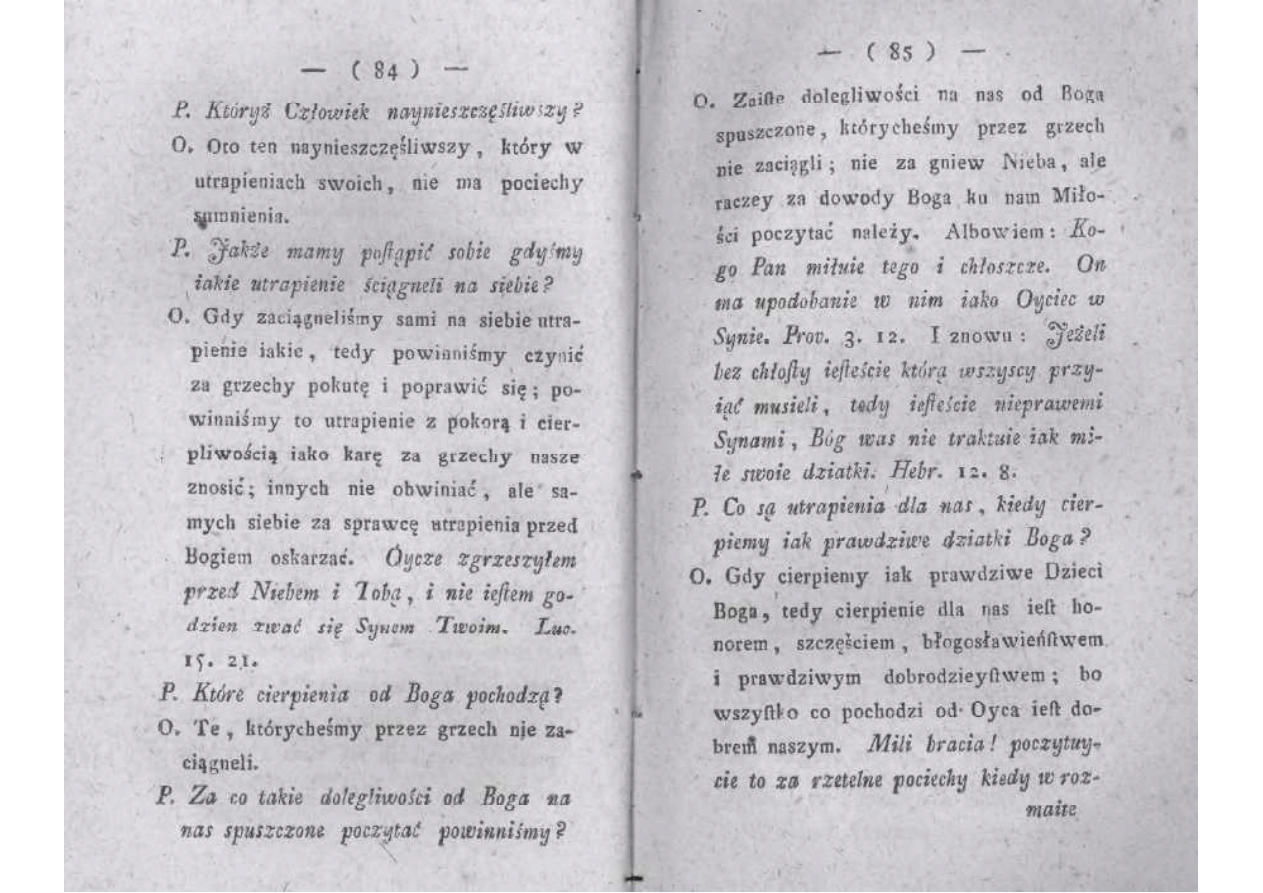 — ( 84 ) —
P. Któryż Człowiek naynieszczęśliwszy?
O. Oto ten naynieszczęśliwszy, który w
utrapieniach swoich, nie ma pociechy
sumnienia.
P. Jakże mamy poſtąpić sobie gdyśmy
iakie utrapienie ściągneli na siebie?
O. Gdy zaciągneliśmy sami na siebie utra-
pienie iakie, tedy powinniśmy czynić
za grzechy pokutę i poprawić się; po-
winniśmy to utrapienie z pokorą i cier-
pliwością iako karę za grzechy nasze
znosić; innych nie obwiniać, ale sa-
mych siebie za sprawcę utrapienia przed
Bogiem oskarzać. Oycze zgrzeszyłem
przed Niebem i Tobą, i nie ieſtem go-
dzien zwać się Synem Twoim. Luc.
15. 21.
P. Które cierpienia od Boga pochodzą?
O. Te, którycheśmy przez grzech nie za-
ciągneli.
P. Za co takie dolegliwości od Boga na
nas spuszczone poczytać powinniśmy?
— ( 85 ) —
O. Zaiſte dolegliwości na nas od Boga
spuszczone, którycheśmy przez grzech
nie zaciągli; nie za gniew Nieba, ale
raczey za dowody Boga ku nam Miło-
ści poczytać należy. Albowiem: Ko-
go Pan miłuie tego i chłoszcze. On
ma upodobanie w nim iako Oyciec w
Synie. Prov. 3. 12. I znowu: Jeżeli
bez chłoſty ieſteście którą wszyscy przy-
iąć musieli, tedy ieſteście nieprawemi
Synami, Bóg was nie traktuie iak mi-
łe swoie dziatki. Hebr. 12. 8.
P. Co są utrapienia dla nas, kiedy cier-
piemy iak prawdziwe dziatki Boga?
O. Gdy cierpiemy iak prawdziwe Dzieci
Boga, tedy cierpienie dla nas ieſt ho-
norem, szczęściem, błogosławieńſtwem
i prawdziwym dobrodzieyſtwem; bo
wszyſtko co pochodzi od Oyca ieſt do-
brem naszym. Mili bracia! poczytuy-
cie to za rzetelne pociechy kiedy w roz-
maite